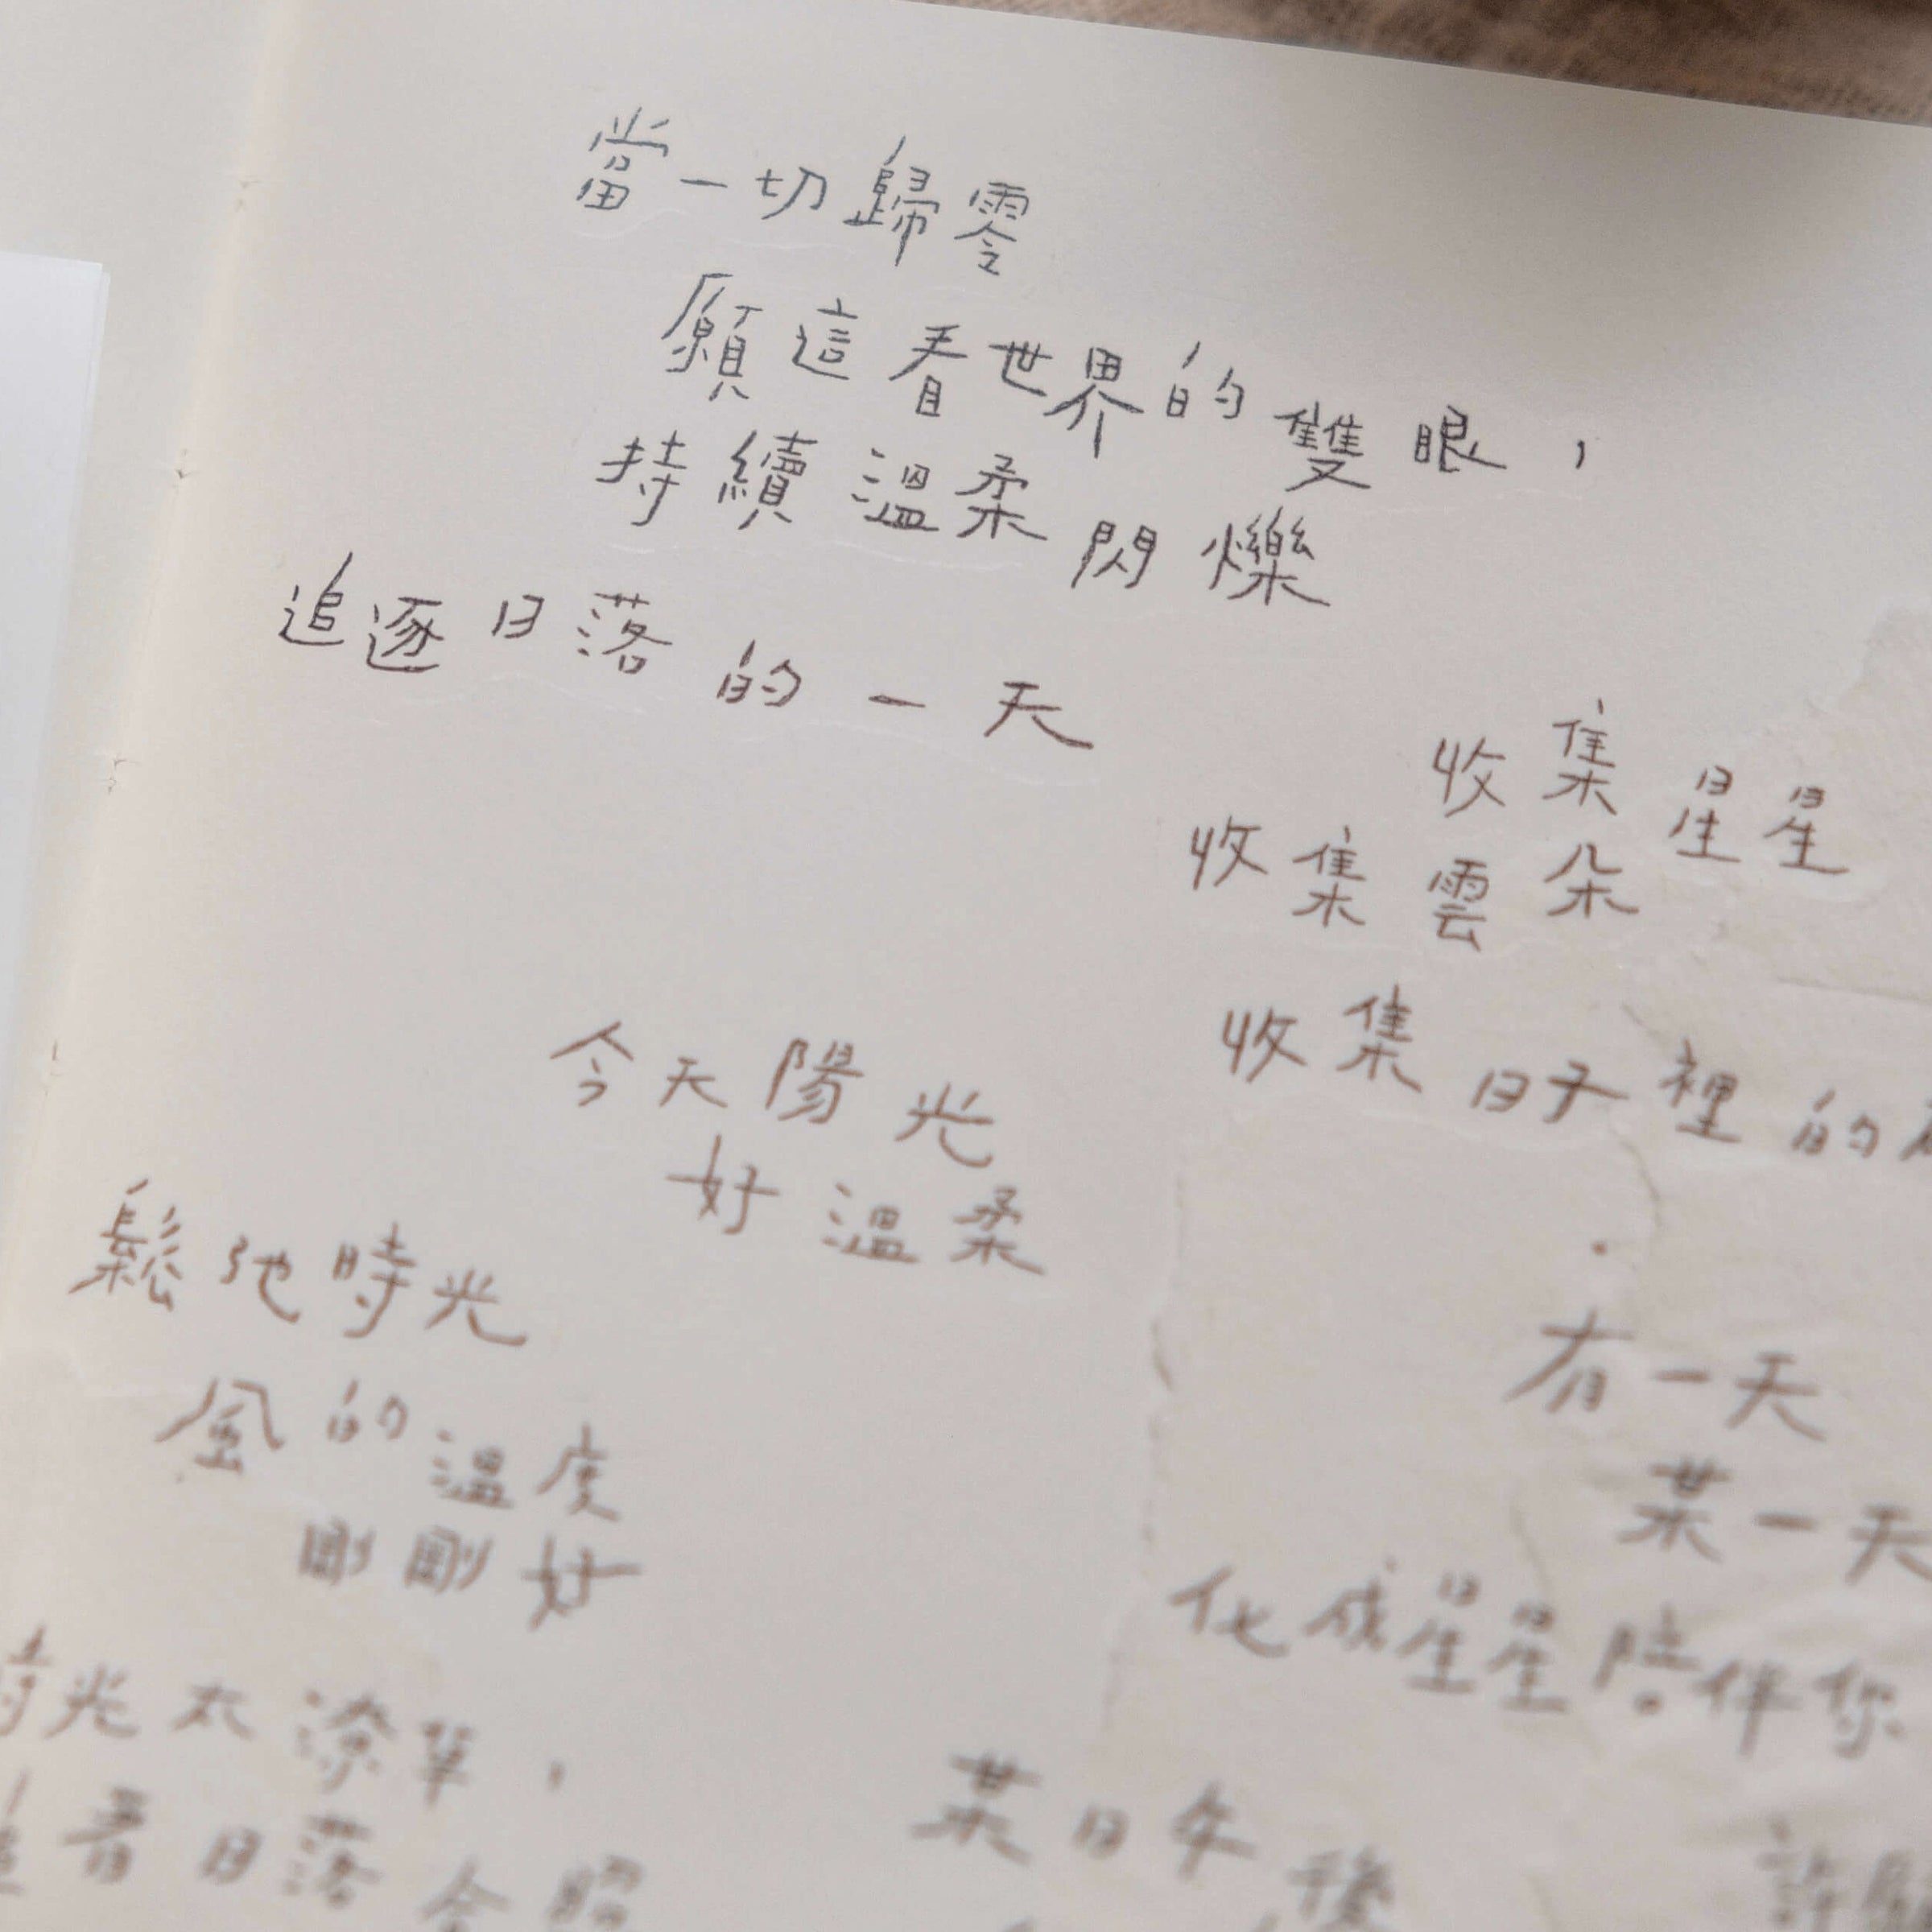 當一切歸零
願這看世界的雙眼，
持續溫柔閃爍
追逐日落的一天
收集星星
收集雲朵
收集日子裡的
今天陽光
好溫柔
鬆弛時光
風的溫度
剛剛好
有一天
某一天
化成星星陪伴你
時光太潦草，
追著日落合照
某日午後
許願